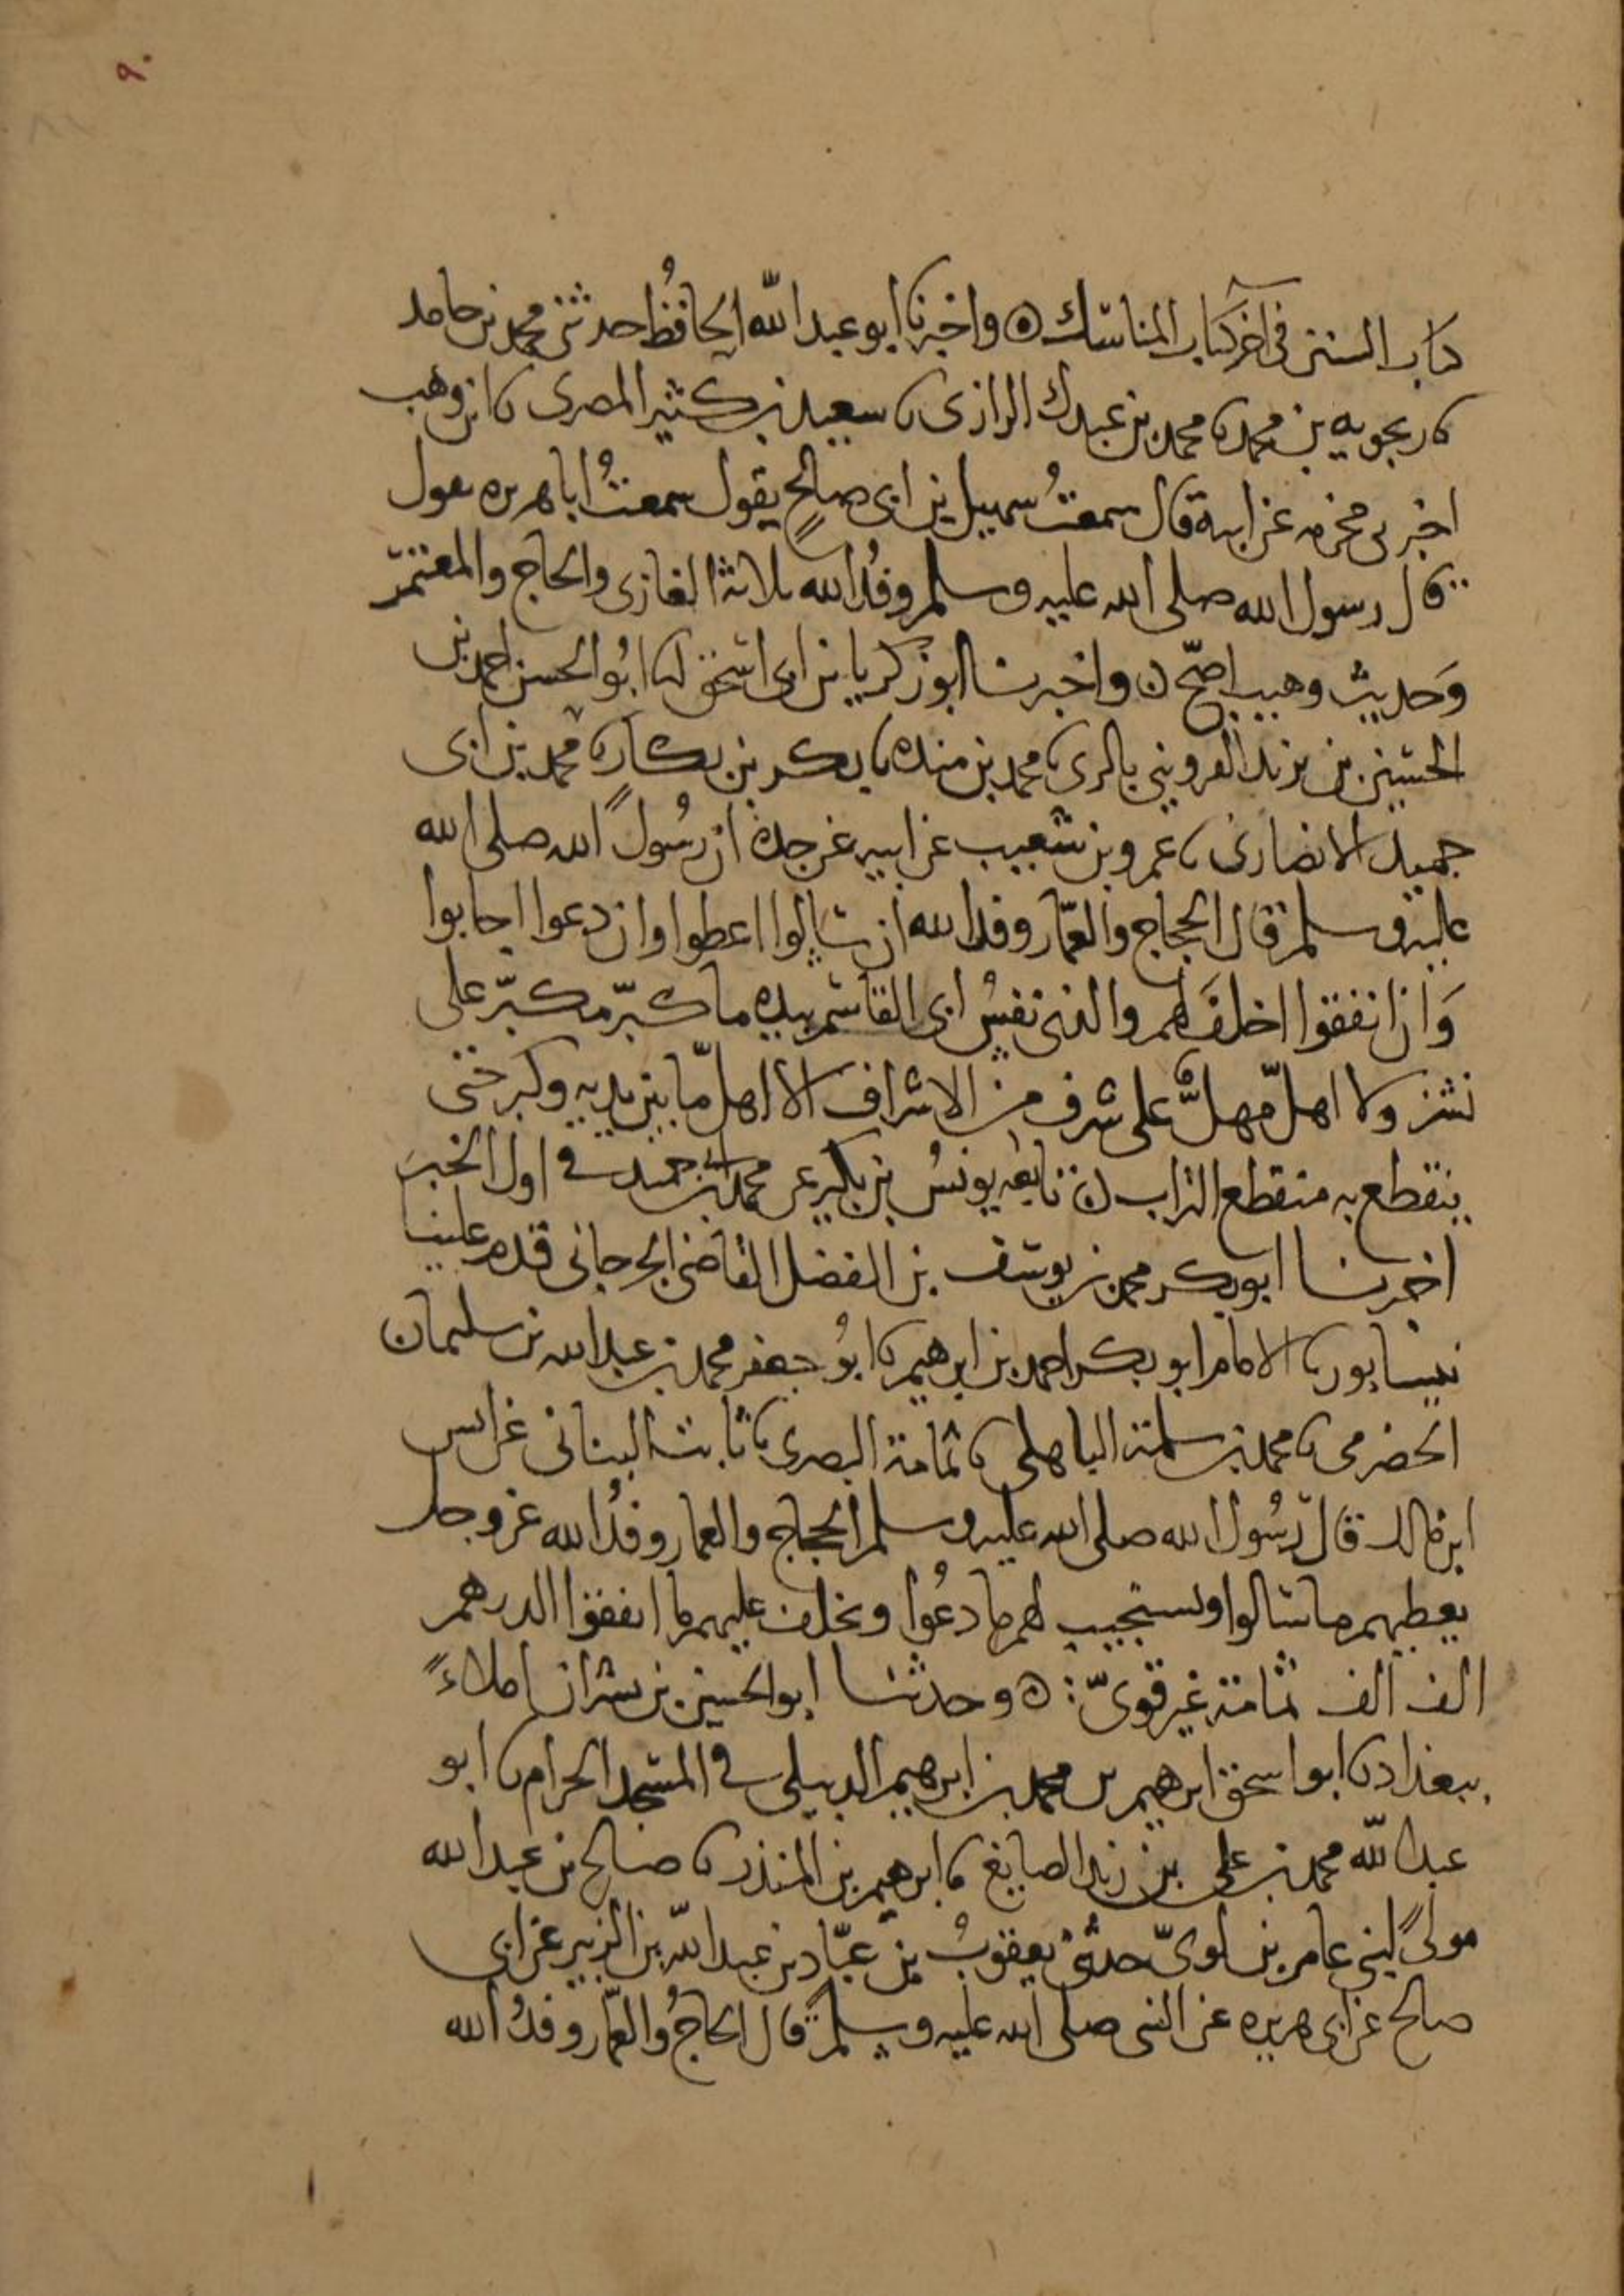 ٩٠
كتاب السنن في آخر كتاب المناسك ۞ واخبرنا ابو عبد الله الحافظُ حدثني محمد بن حامد
نا ربحويه بن محمد نا محمد بن عبدك الرازي نا سعيد بن كثير المصرى نا ابن وهب
اخبرني مخرمه عن ابيه قال سمعتُ سهيل بن ابي صالحٍ يقول سمعتُ ابا هريره يقول
قال رسول الله صلى الله عليه وسلم وفدُ الله ثلاثة الغازى والحاج والمعتمر
وَحديث وهيب اصحّ ن واخبرنا ابو زكريا بن ابي اسحق انا ابُو الحسن احمد بن
الحسين بن يزيد القزويني بالرى نا محمد بن منده نا بكر بن بكار نا محمد بن ابي
حميد الانصارى نا عمرو بن شعيب عن ابيه عن جده ان رسُول الله صلى الله
عليه وسلم قال الحجاج والعمّار وفد الله ان سالوا اعطوا وان دعوا اجابوا
وَان انفقوا اخلفَ لهم والذى نفسُ ابي القاسم بيده ما كبّر مكبّر على
نشز ولا اهلّ مهلٌّ على شرف من الاشراف الا اهل ما بين يديه وكبر حتى
ينقطع به منقطع التراب ن تابعه يونسُ بن بكير عن محمد بن ابي حميد في اول الخبر
اخبرنا ابو بكر محمد بن يوسف بن الفضل القاضي الجرجاني قدم علينا
نيسابور نا الامام ابو بكر احمد بن ابرهيم نا ابُو جعفر محمد بن عبد الله بن سليمان
الحضرمي نا محمد بن سلمة الباهلي نا ثمامة البصرى نا ثابت البناني عن انس
ابن مالك قال رسُول الله صلى الله عليه وسلم الحجاج والعمار وفدُ الله عز وجل
يعطيهم ما سالوا ويستجيب لهم ما دعُوا ويخلف عليهم ما انفقوا الدرهم
الف الف ثمامة غير قويّ : ۞ وحدثنا ابو الحسين بن بشران املاءً
ببغداد نا ابو اسحق ابرهيم بن محمد بن ابرهيم الديبلي في المسجد الحرام نا ابو
عبد الله محمد بن علي بن زيد الصايغ نا ابرهيم بن المنذر نا صالح بن عبد الله
مولىً لبني عامر بن لويّ حدثني يعقوبُ بن عبّاد بن عبد الله بن الزبير عن ابي
صالح عن ابي هريره عن النبي صلى الله عليه وسلم قال الحاجُ والعمّار وفدُ الله